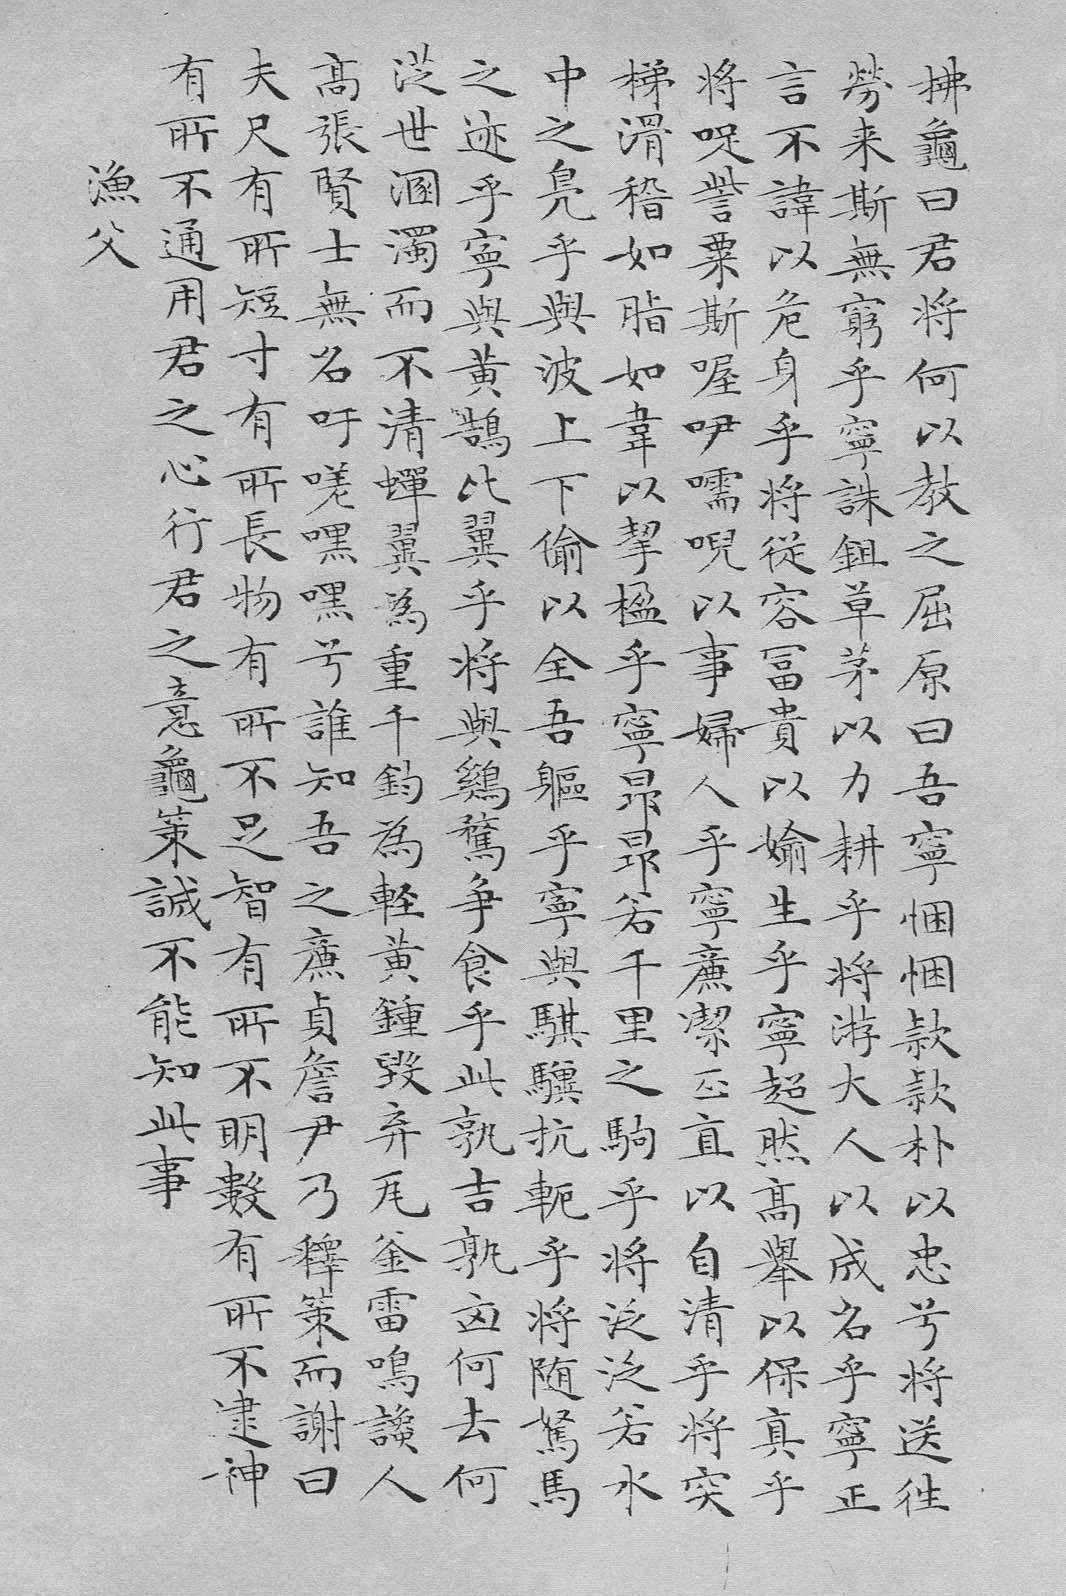 拂龜曰君将何以教之屈原曰吾寧悃悃款款朴以忠兮将送往
勞来斯無窮乎寧誅鉏草茅以力耕乎将游大人以成名乎寧正
言不諱以危身乎将從容冨貴以媮生乎寧超然髙舉以保真乎
将哫訾粟斯喔咿嚅唲以事婦人乎寧亷潔正直以自清乎将突
梯滑稽如脂如韋以挈楹乎寧昂昂若千里之駒乎将泛泛若水
中之鳬乎與波上下偷以全吾軀乎寧與騏驥抗軛乎将随駑馬
之迹乎寧與黄鵠比翼乎将與鷄鶩争食乎此孰吉孰凶何去何
從世溷濁而不清蟬翼為重千鈞為軽黄鍾毀弃瓦釜雷鳴讒人
髙張賢士無名吁嗟嘿嘿兮誰知吾之亷貞詹尹乃釋策而謝曰
夫尺有所短寸有所長物有所不足智有所不明數有所不逮神
有所不通用君之心行君之意龜策誠不能知此事
漁父